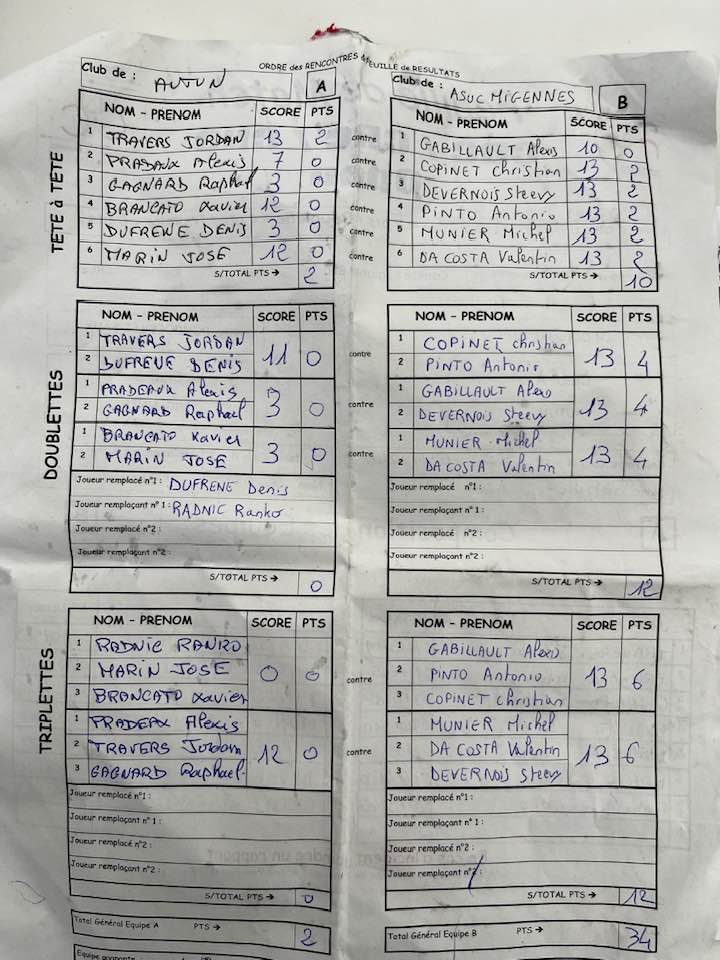 ORDRE des RENCONTRES & FEUILLE de RESULTATS
Club de : AUTUN A
TETE à TETE
NOM - PRENOM SCORE PTS
1 TRAVERS JORDAN 13 2
2 PRADAUX Alexis 7 0
3 GAGNARD Raphaël 3 0
4 BRANCATO Xavier 12 0
5 DUFRENE DENIS 3 0
6 MARIN JOSE 12 0
S/TOTAL PTS → 2
contre
contre
contre
contre
contre
contre
Club de : ASUC MIGENNES B
NOM - PRENOM SCORE PTS
1 GABILLAULT Alexis 10 0
2 COPINET Christian 13 2
3 DEVERNOIS Steevy 13 2
4 PINTO Antonio 13 2
5 MUNIER Michel 13 2
6 DA COSTA Valentin 13 2
S/TOTAL PTS → 10
DOUBLETTES
NOM - PRENOM SCORE PTS
1 TRAVERS JORDAN
2 DUFRENE DENIS 11 0
1 PRADEAUX Alexis
2 GAGNARD Raphael 3 0
1 BRANCATO Xavier
2 MARIN JOSE 3 0
Joueur remplacé n°1 : DUFRENE Denis
Joueur remplaçant n° 1 : RADNIC Ranko
Joueur remplacé n°2 :
Joueur remplaçant n°2 :
S/TOTAL PTS → 0
contre
contre
contre
NOM - PRENOM SCORE PTS
1 COPINET Christian
2 PINTO Antonio 13 4
1 GABILLAULT Alexis
2 DEVERNOIS Steevy 13 4
1 MUNIER Michel
2 DA COSTA Valentin 13 4
Joueur remplacé n°1 :
Joueur remplaçant n° 1 :
Joueur remplacé n°2 :
Joueur remplaçant n°2 :
S/TOTAL PTS → 12
TRIPLETTES
NOM - PRENOM SCORE PTS
1 RADNIC RANKO
2 MARIN JOSE 0 0
3 BRANCATO Xavier
1 PRADEAX Alexis
2 TRAVERS Jordan 12 0
3 GAGNARD Raphael
Joueur remplacé n°1 :
Joueur remplaçant n° 1 :
Joueur remplacé n°2 :
Joueur remplaçant n°2 :
S/TOTAL PTS → 0
Total Général Equipe A PTS → 2
contre
contre
NOM - PRENOM SCORE PTS
1 GABILLAULT Alexis
2 PINTO Antonio 13 6
3 COPINET Christian
1 MUNIER Michel
2 DA COSTA Valentin 13 6
3 DEVERNOIS Steevy
Joueur remplacé n°1 :
Joueur remplaçant n° 1 :
Joueur remplacé n°2 :
Joueur remplaçant n°2 :
S/TOTAL PTS → 12
Total Général Equipe B PTS → 34